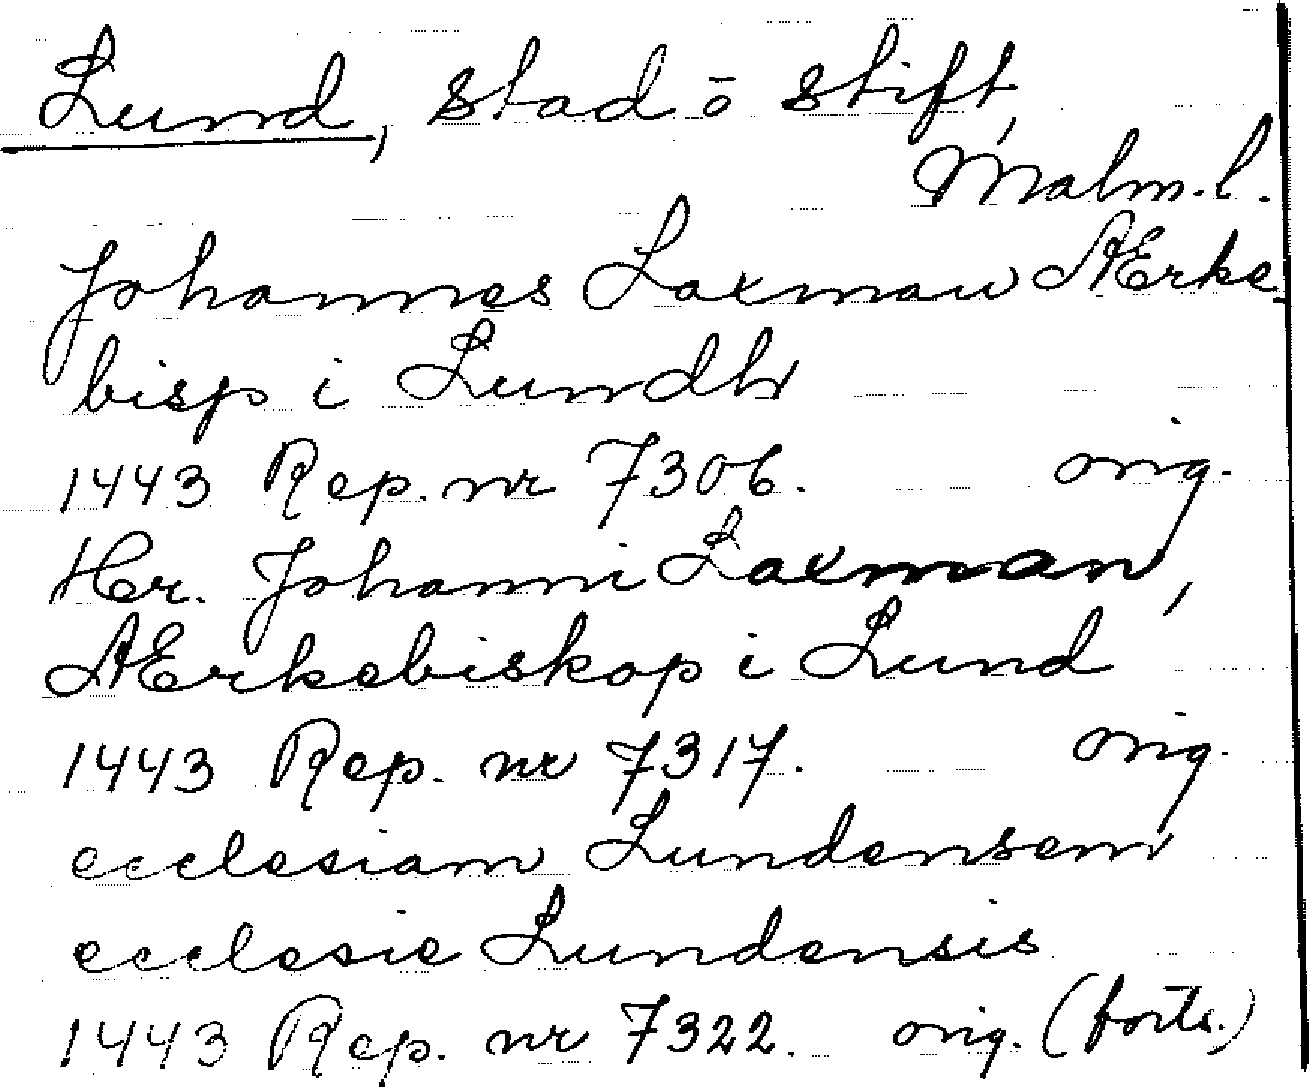 Lund, stad o stift,
Malm. l.
Johannes Laxman Ærke-
bisp i Lundh
1443 Rep. nr 7306. orig.
Her. Johanni Laxman,
Ærkebiskop i Lund
1443 Rep. nr 7317. orig.
ecclesiam Lundensem
ecclesie Lundensis
1443 Rep. nr 7322. orig. (forts.)